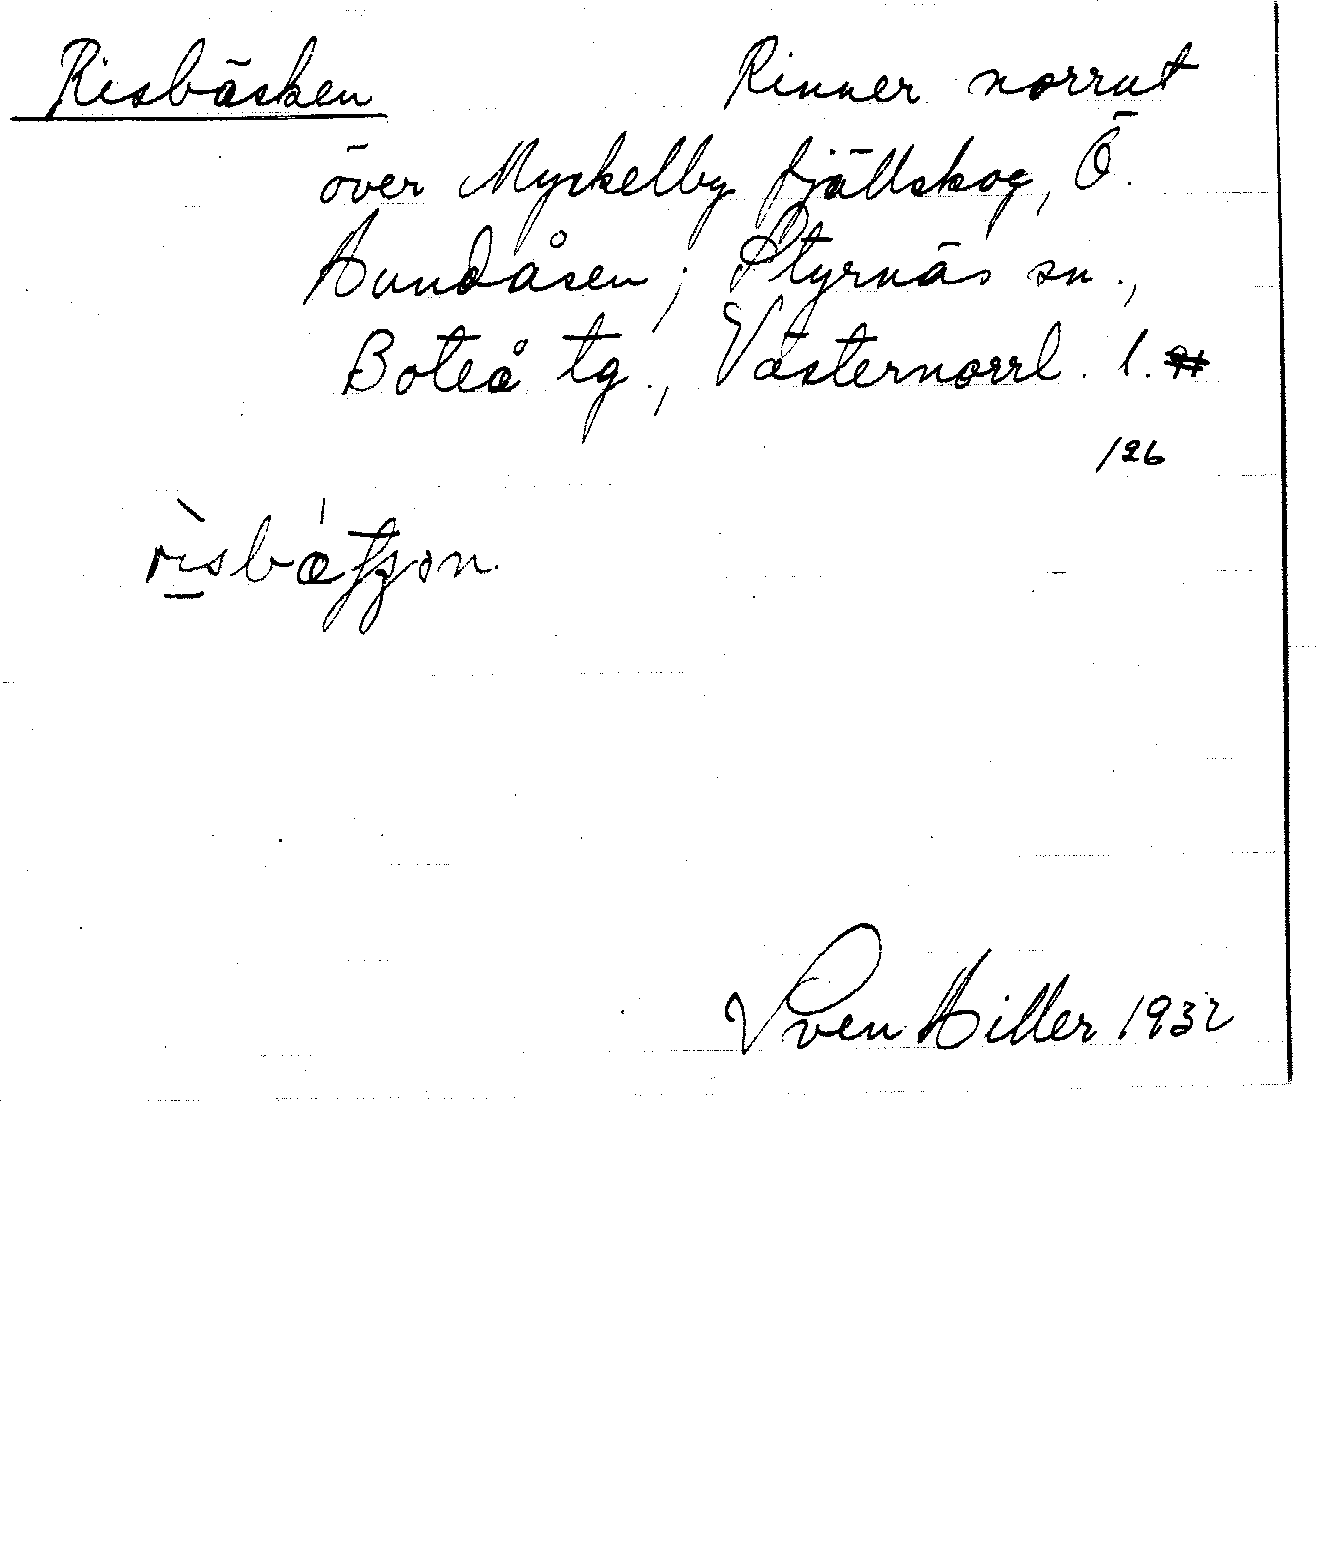 Risbäcken Rinner norrut
över Myckelby fjällskog, Ö.
Hundåsen; Styrnäs sn.,
Boteå tg., Västernorrl. l.
126
Sven Hiller 1932